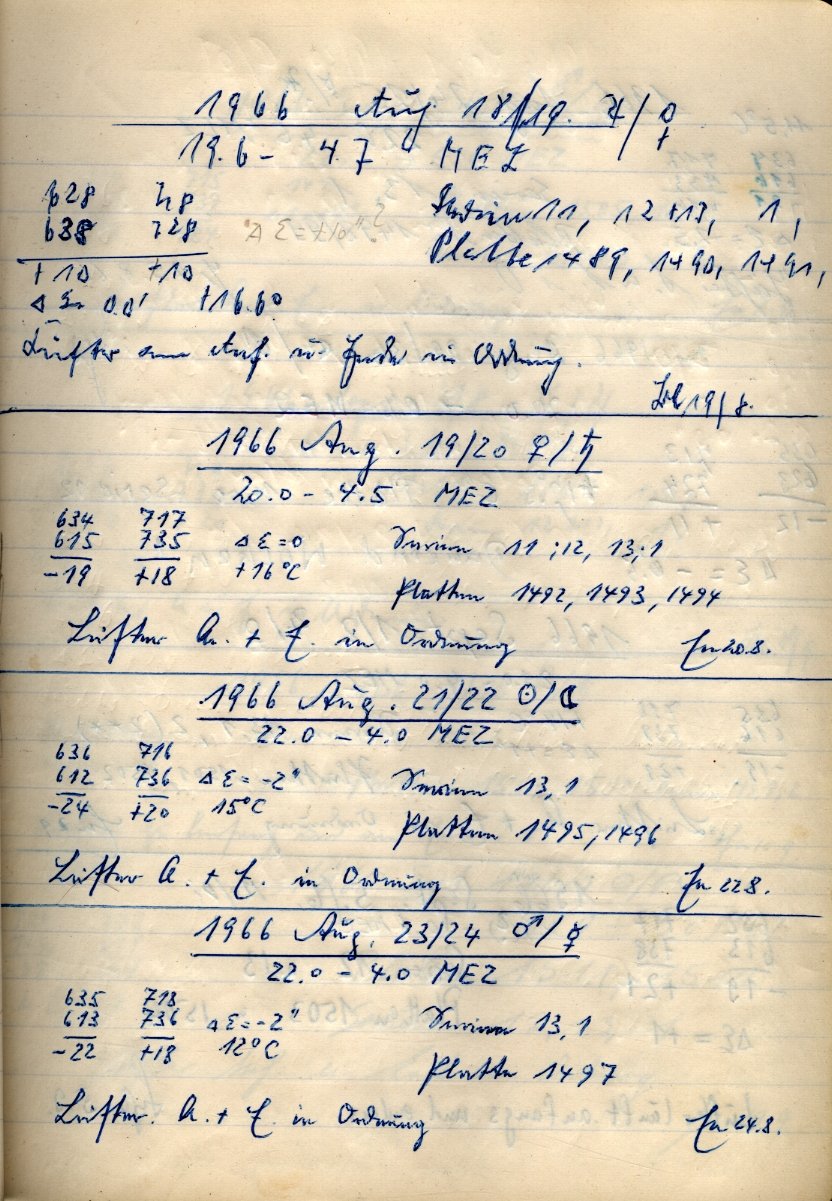 1966 Aug 18/19. ♃/♀
19.6 – 4.7 MEZ
628 718 Serien 11, 12+13, 1,
638 728 Δ ε = +10"? Platte 1489, 1490, 1491,
+10 +10
Δ ε = 0.0' +16.6°
Lüfter am Anf. u. Ende in Ordnung.
19/8.
1966 Aug. 19/20 ♀/♄
20.0 – 4.5 MEZ
634 717
615 735 Δ ε = 0 Serien 11; 12, 13; 1
-19 +18 +16°C
Platten 1492, 1493, 1494
Lüfter A. + E. in Ordnung En 20.8.
1966 Aug. 21/22 ☉/☾
22.0 – 4.0 MEZ
636 716
612 736 Δ ε = -2" Serien 13, 1
-24 +20 15°C
Platten 1495, 1496
Lüfter A. + E. in Ordnung En 22.8.
1966 Aug. 23/24 ♂/☿
22.0 – 4.0 MEZ
635 718
613 736 Δ ε = -2" Serien 13, 1
-22 +18 12°C
Platte 1497
Lüfter. A. + E. in Ordnung En 24.8.